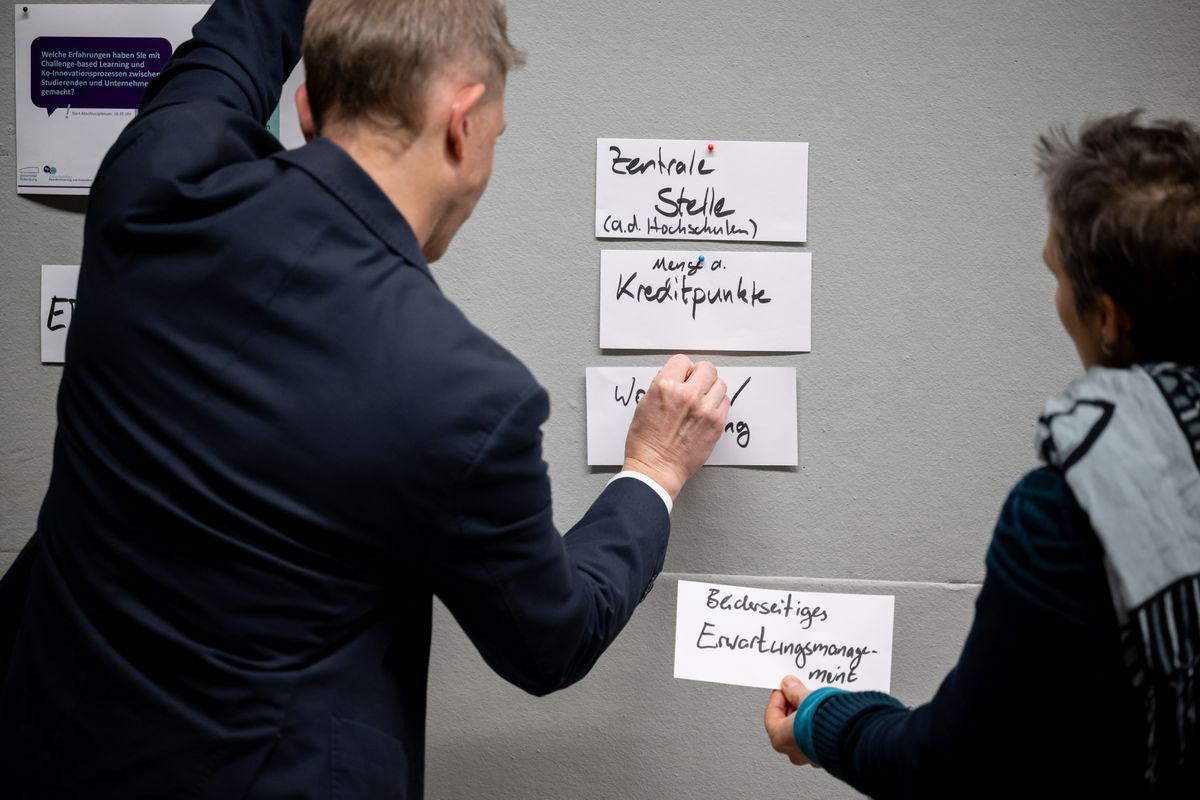 Welche Erfahrungen haben Sie mit
Challenge-based Learning und
Ko-Innovationsprozessen zwischen
Studierenden und Unternehme
gemacht?
Start Abschlussplenum: 16:35 Uhr
Zentrale
Stelle
(a.d. Hochschulen)
Menge a.
Kreditpunkte
/
ng
Beiderseitiges
Erwartungsmanage-
ment